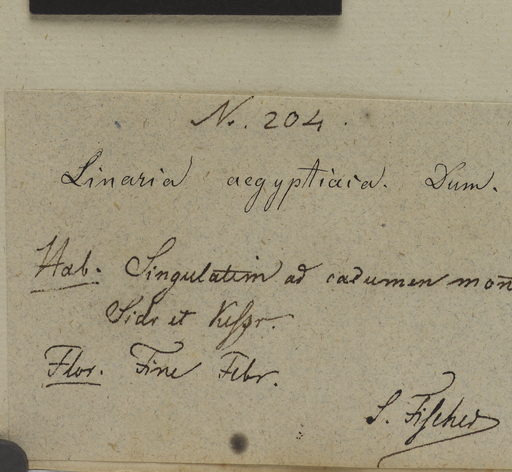 N. 204.
Linaria aegyptiaca. Dum.
Hab. Singulatim ad cacumen mon
Sidr et
Flor. Fine Febr.
S. Fischer